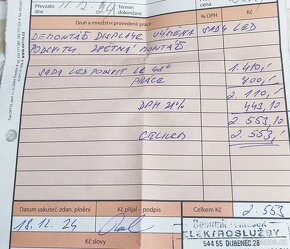 Převzato 11.12.24 Termín dokončení
Druh a množství provedené práce % DPH Kč
DEMONTÁŽ DISPLAYE VÝMĚNA SADY LED
PODSVITU ZPĚTNÁ MONTÁŽ
SADA LED PODSVIT LG 49" 1.410,-
PRÁCE 700,-
2.110,-
DPH 21% 443,10
2.553,10
CELKEM 2.553,-
Datum uskuteč. zdan. plnění Kč přijal - podpis Celkem Kč 2.553
18.12.24
Kč slovy
ELEKTROSLUŽBY
544 55 DUBENEC 28